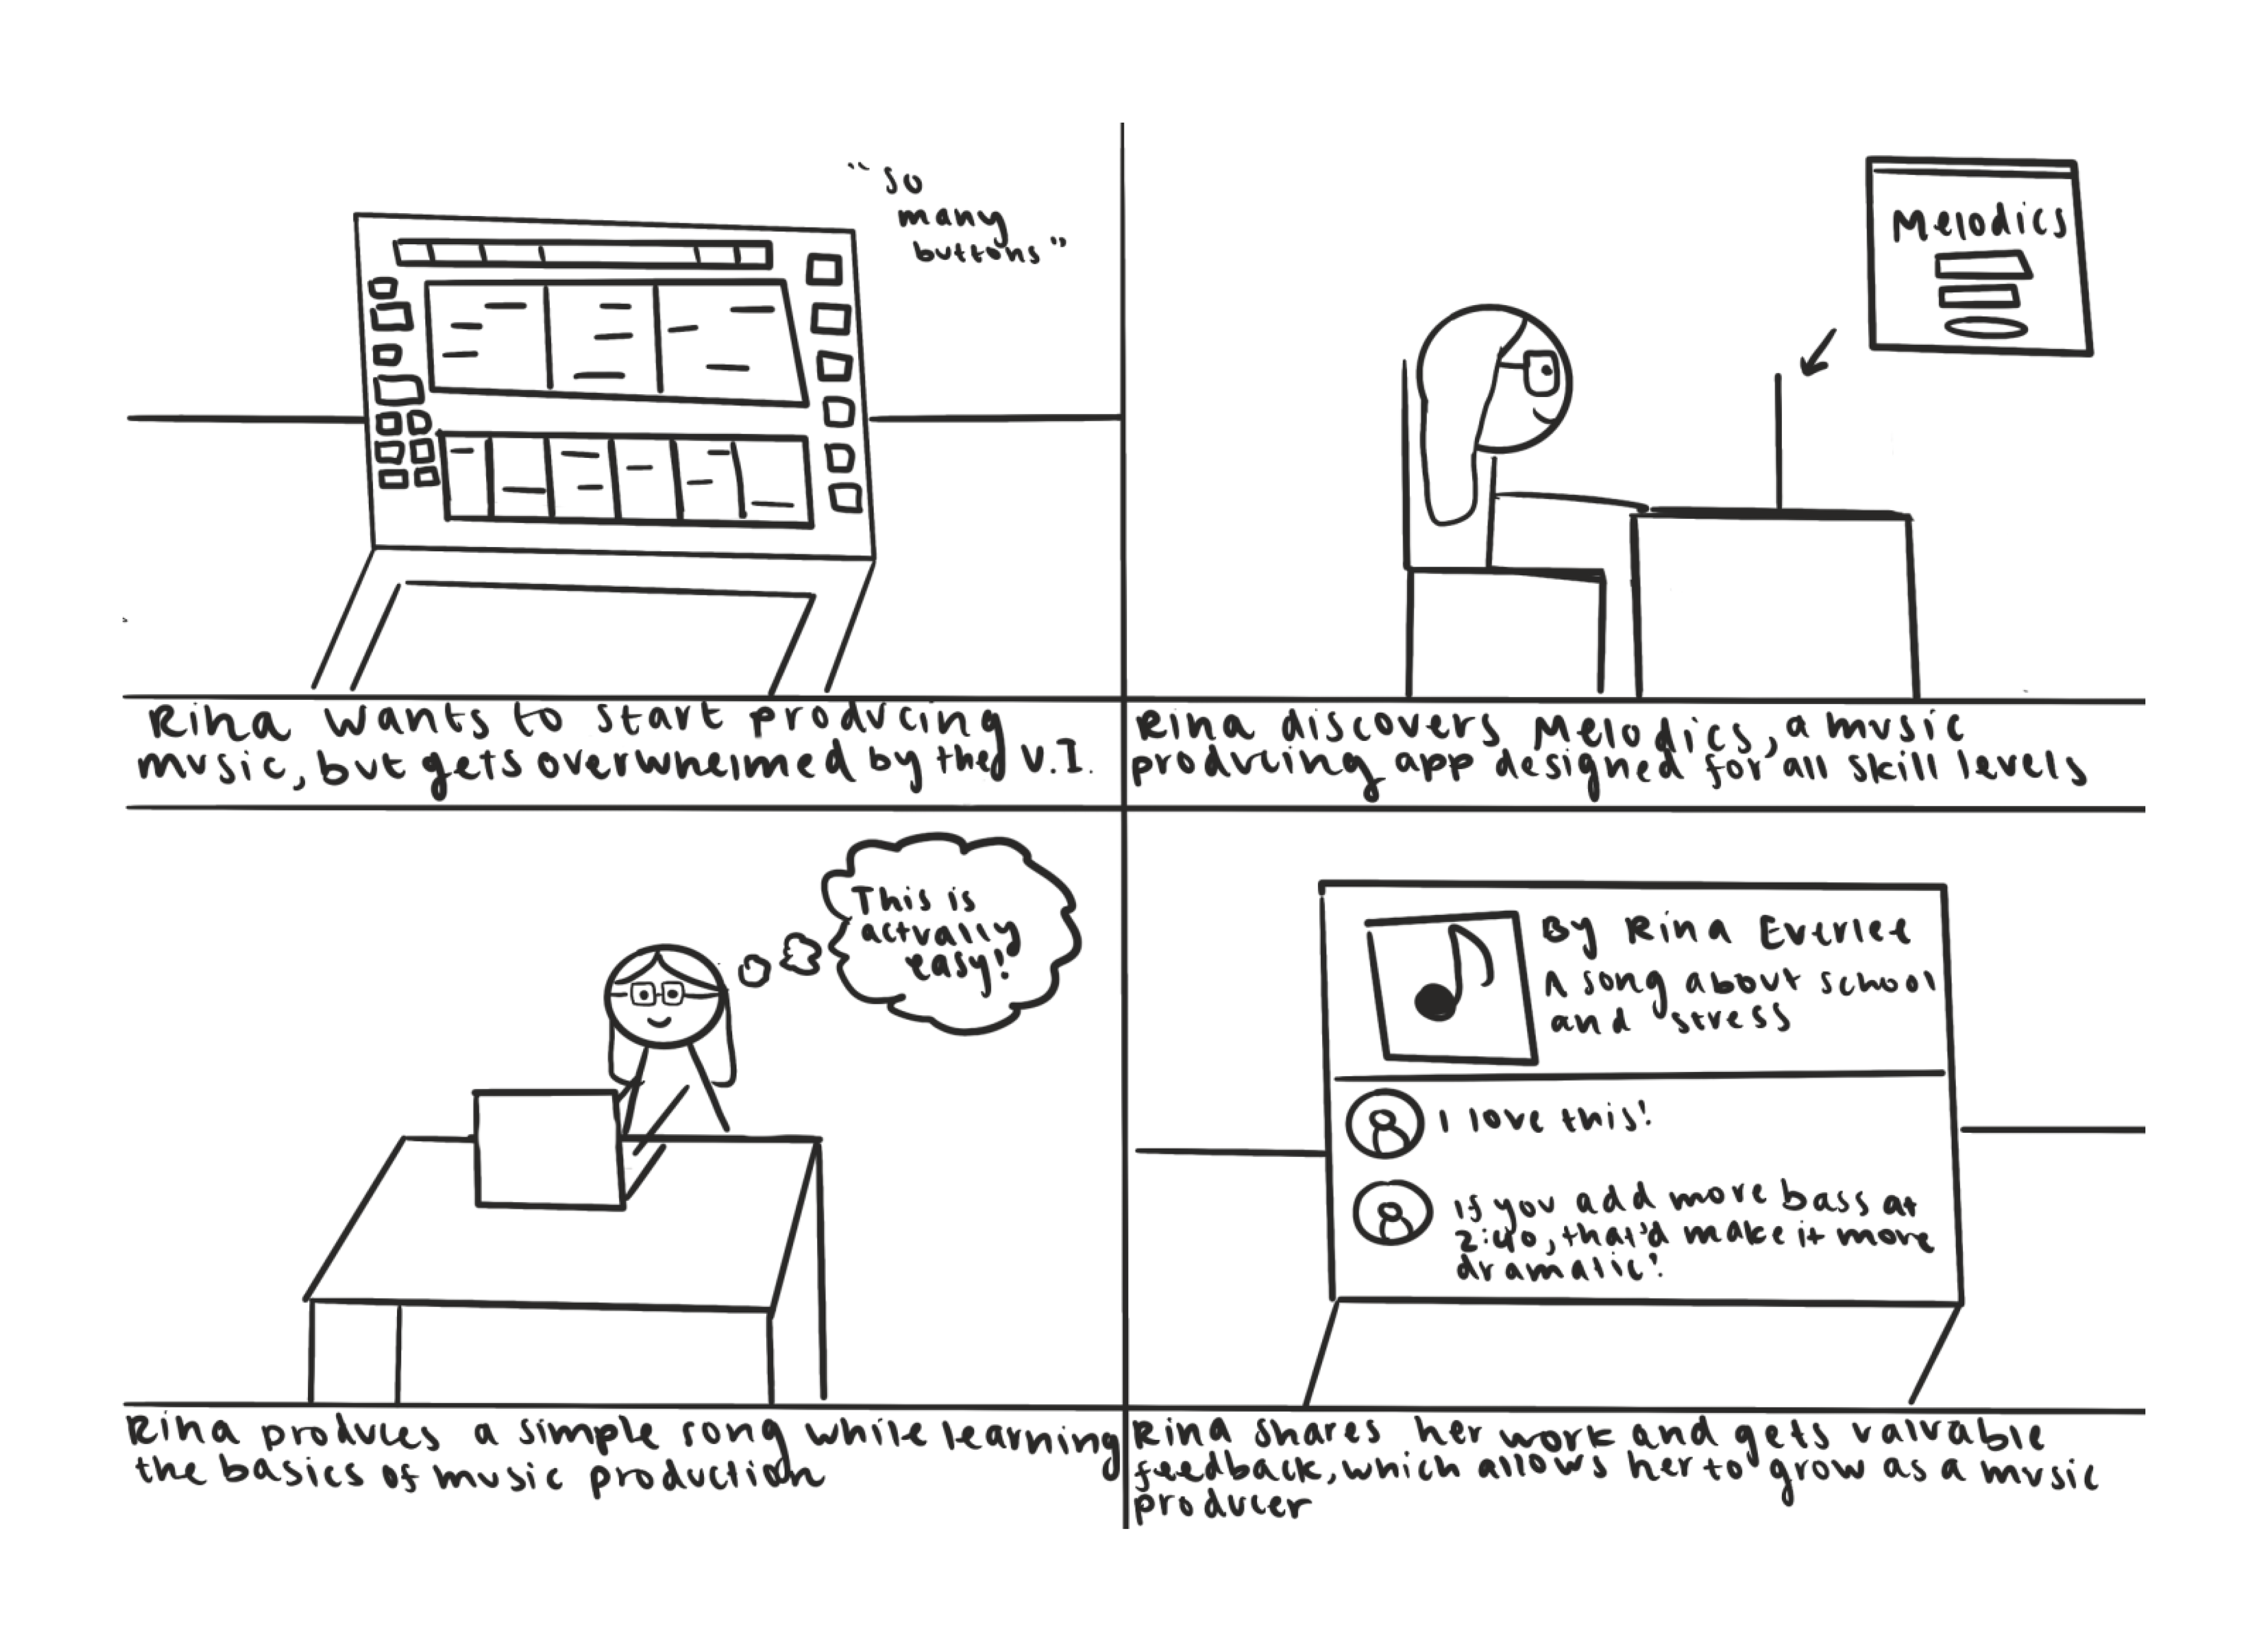 "so
many
buttons"
Rina wants to start producing
music, but gets overwhelmed by the U.I.
Melodics
Rina discovers Melodics, a music
producing app designed for all skill levels
This is
actually
easy!
Rina produces a simple song while learning
the basics of music production
By Rina Everlee
A song about school
and stress
I love this!
If you add more bass at
2:40, that'd make it more
dramatic!
Rina shares her work and gets valuable
feedback, which allows her to grow as a music
producer